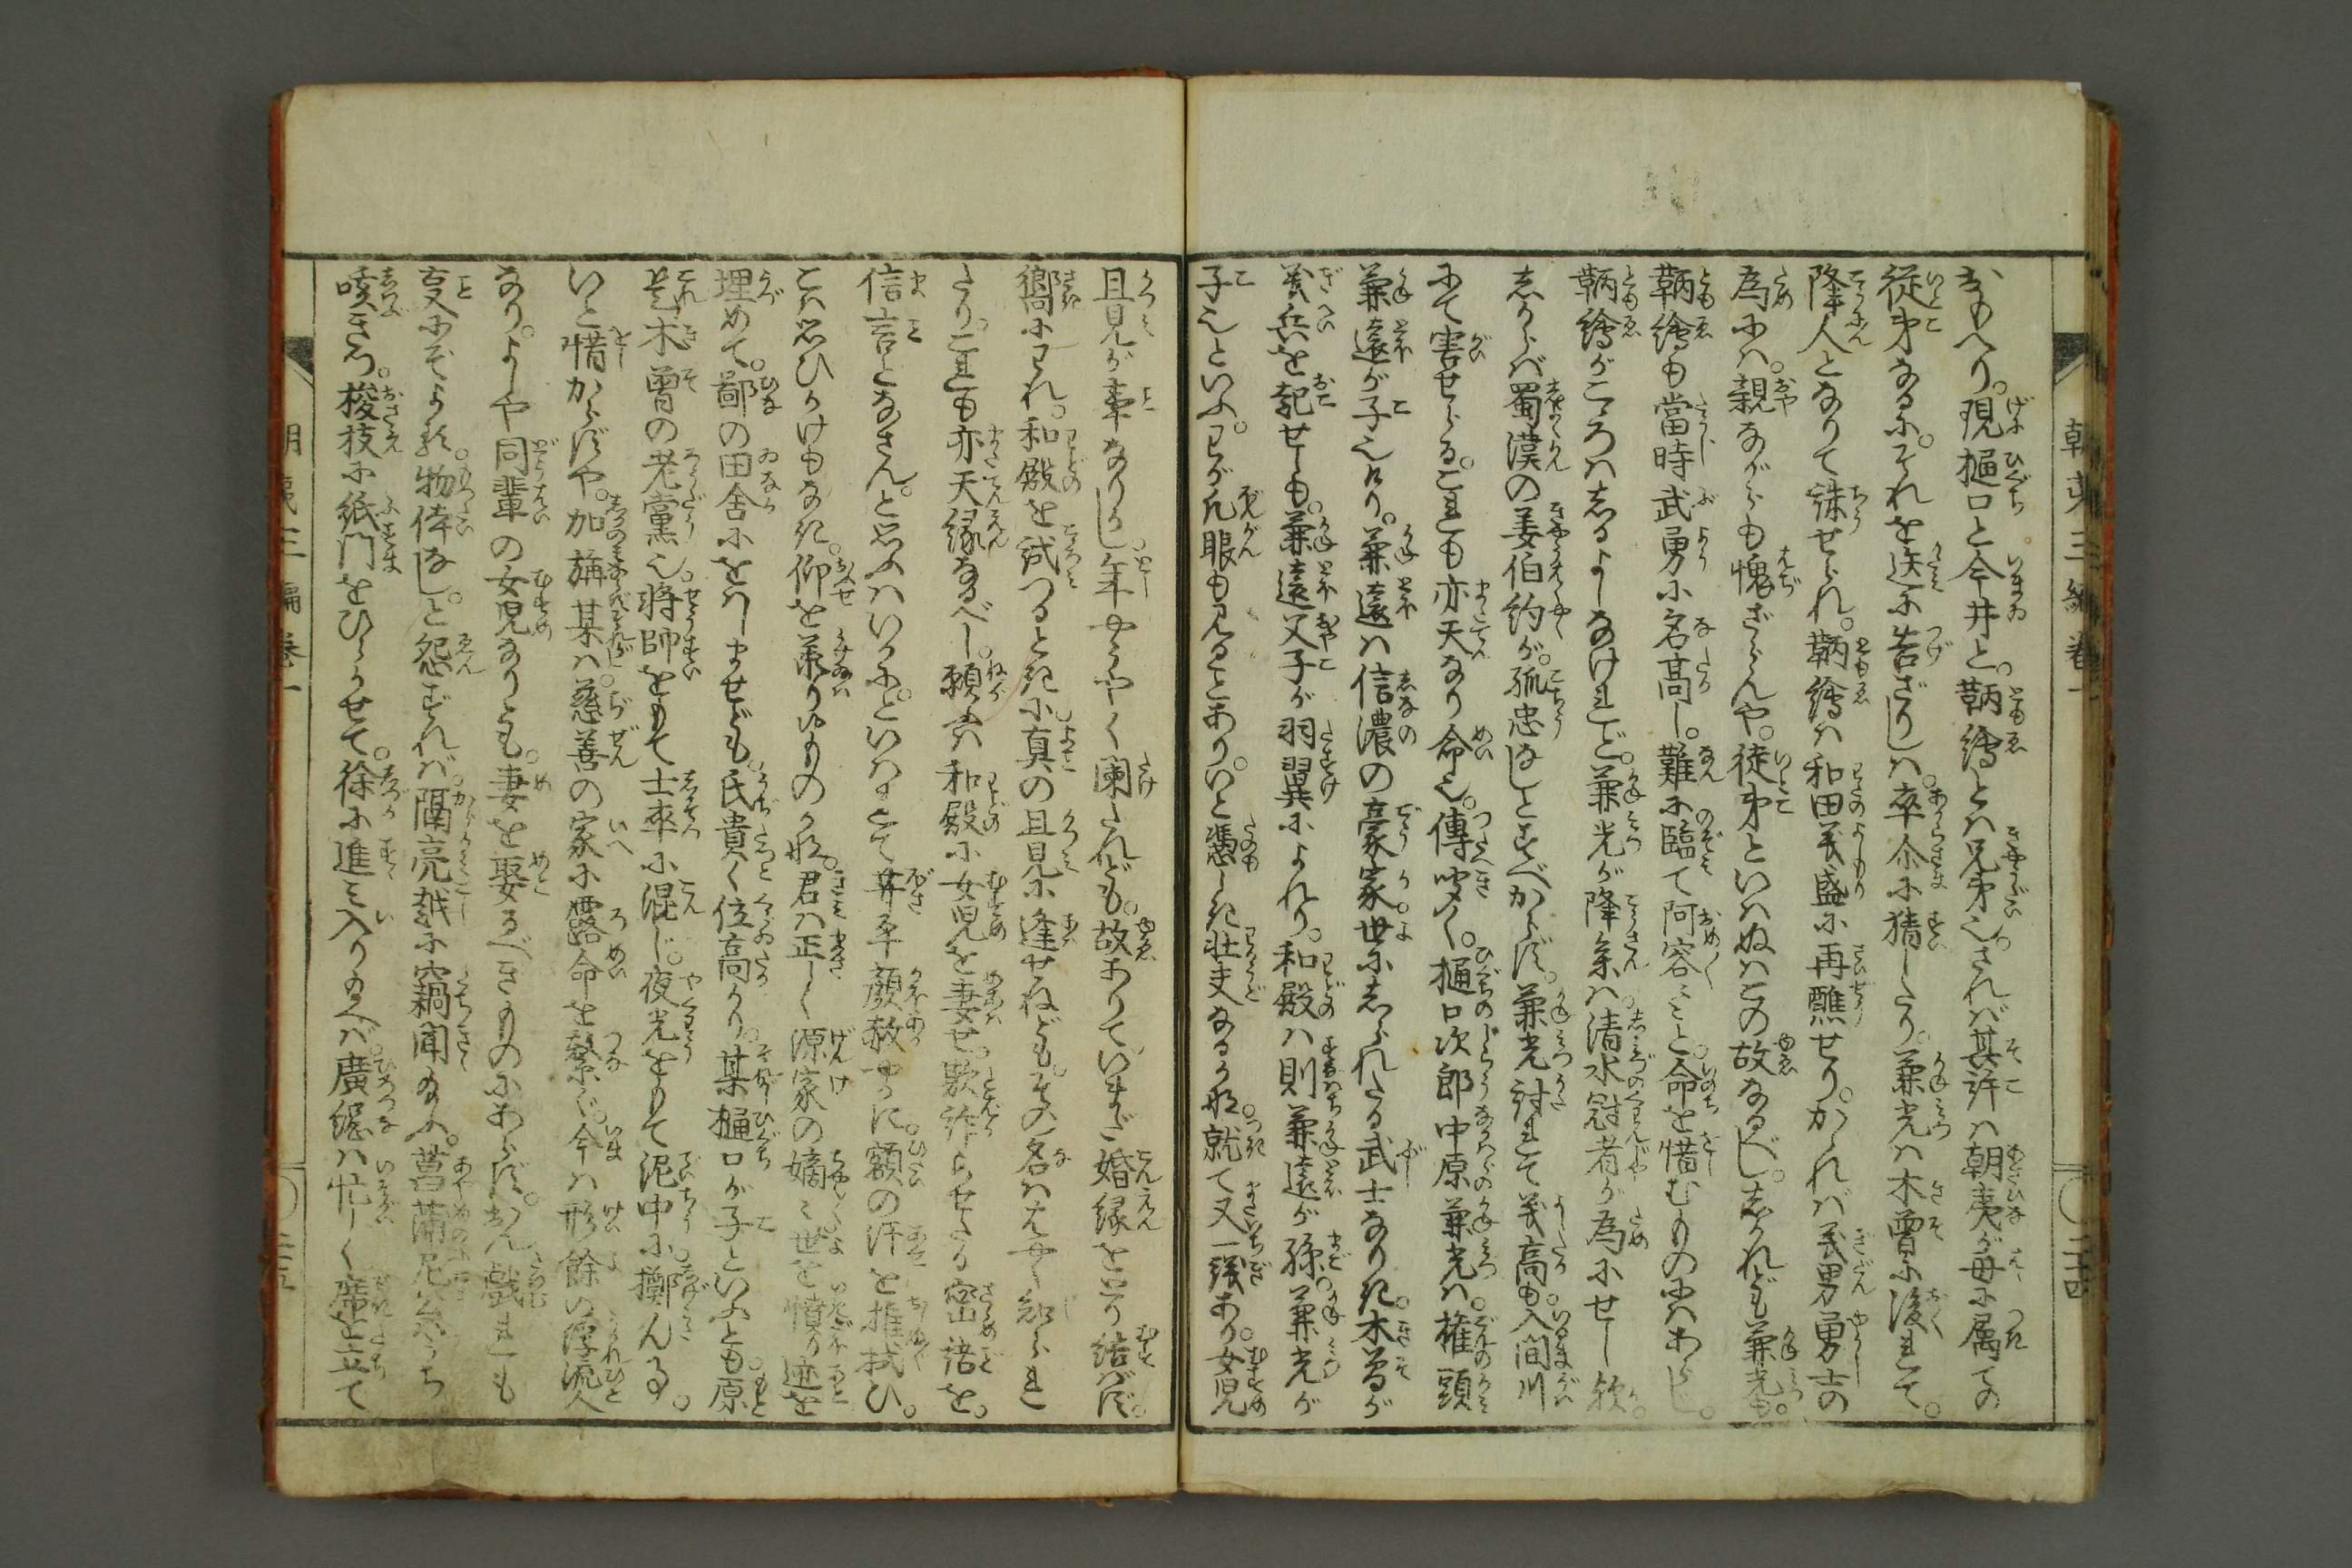 朝夷三編巻一
なのへり。現樋口と今井と。鞆繪とハ兄弟也。されバ其許ハ朝夷が母に属ての
従弟なるに。それを迭に告ざりしハ。卒尓に猜したり。兼光ハ木曽に後れて。
降人となりて誅せられ。鞆繪ハ和田義盛に再醮せり。かゝれバ義男勇士の
為にハ。親ながらも愧ざらんや。従弟といハぬハこの故なるべし。しかれども兼光も。
鞆繪も當時武勇に名高し。難に臨て阿容々々と。命を惜むものにハあらじ。
鞆繪がこゝろハしるよしなけれど。兼光が降参ハ。清水冠者が為にせし歟。
しからバ蜀漢の姜伯約が。孤忠なしとすべからず。兼光討れて義高も。入間川
にて害せらる。これも亦天なり命也。傳聞く。樋口次郎中原兼光ハ。権頭
兼遠が子也けり。兼遠ハ信濃の豪家。世にしられたる武士なりき。木曽が
義兵を起せしも。兼遠父子が羽翼によれり。和殿ハ則兼遠が孫。兼光が
子也といふ。わが凡眼も見るとあり。いと憑しき壮夫なるかな。就て又一議あり。女児
二十四
且見が事なりし。年やうやく闌たれども。故ありていまだ婚縁をとり結バず。
嚮にわれ。和殿を試つるときに。真の且見に逢せねども。その名ハはやく知られ
たり。これも亦天縁なるべし。願ふハ和殿に女児を妻せ。歟詐らせたる密諾を。
信言となさん。と思ふハいかに。といはれて葬平顔赧やかに。額の汗を推拭ひ。
こハ思ひかけもなき。仰を承りゆものかな。君ハ正しく源家の嫡々世を憤り迹を
埋めて。鄙の田舎にをハしませども。氏貴く位高かり。某樋口が子といふとも。原
是木曽の老黨也。将師をもて士卒に混じ。夜光をもて泥中に擲ん事。
いと惜からずや。加旃某ハ。慈善の家に露命を繋ぐ。今ハ形餘の浮浪人
なり。よしや同輩の女児なりとも。妻を娶るべきものにあらず。おん戯れも
事にぞよる。物体なし。と怨ずれバ。隔亮越に竊聞なふ。菖蒲尼公うち
咳きつゝ。梭枝に紙門をひらかせて。徐に進み入り給へバ。廣綱ハ忙しく席を立て
朝夷三編巻一